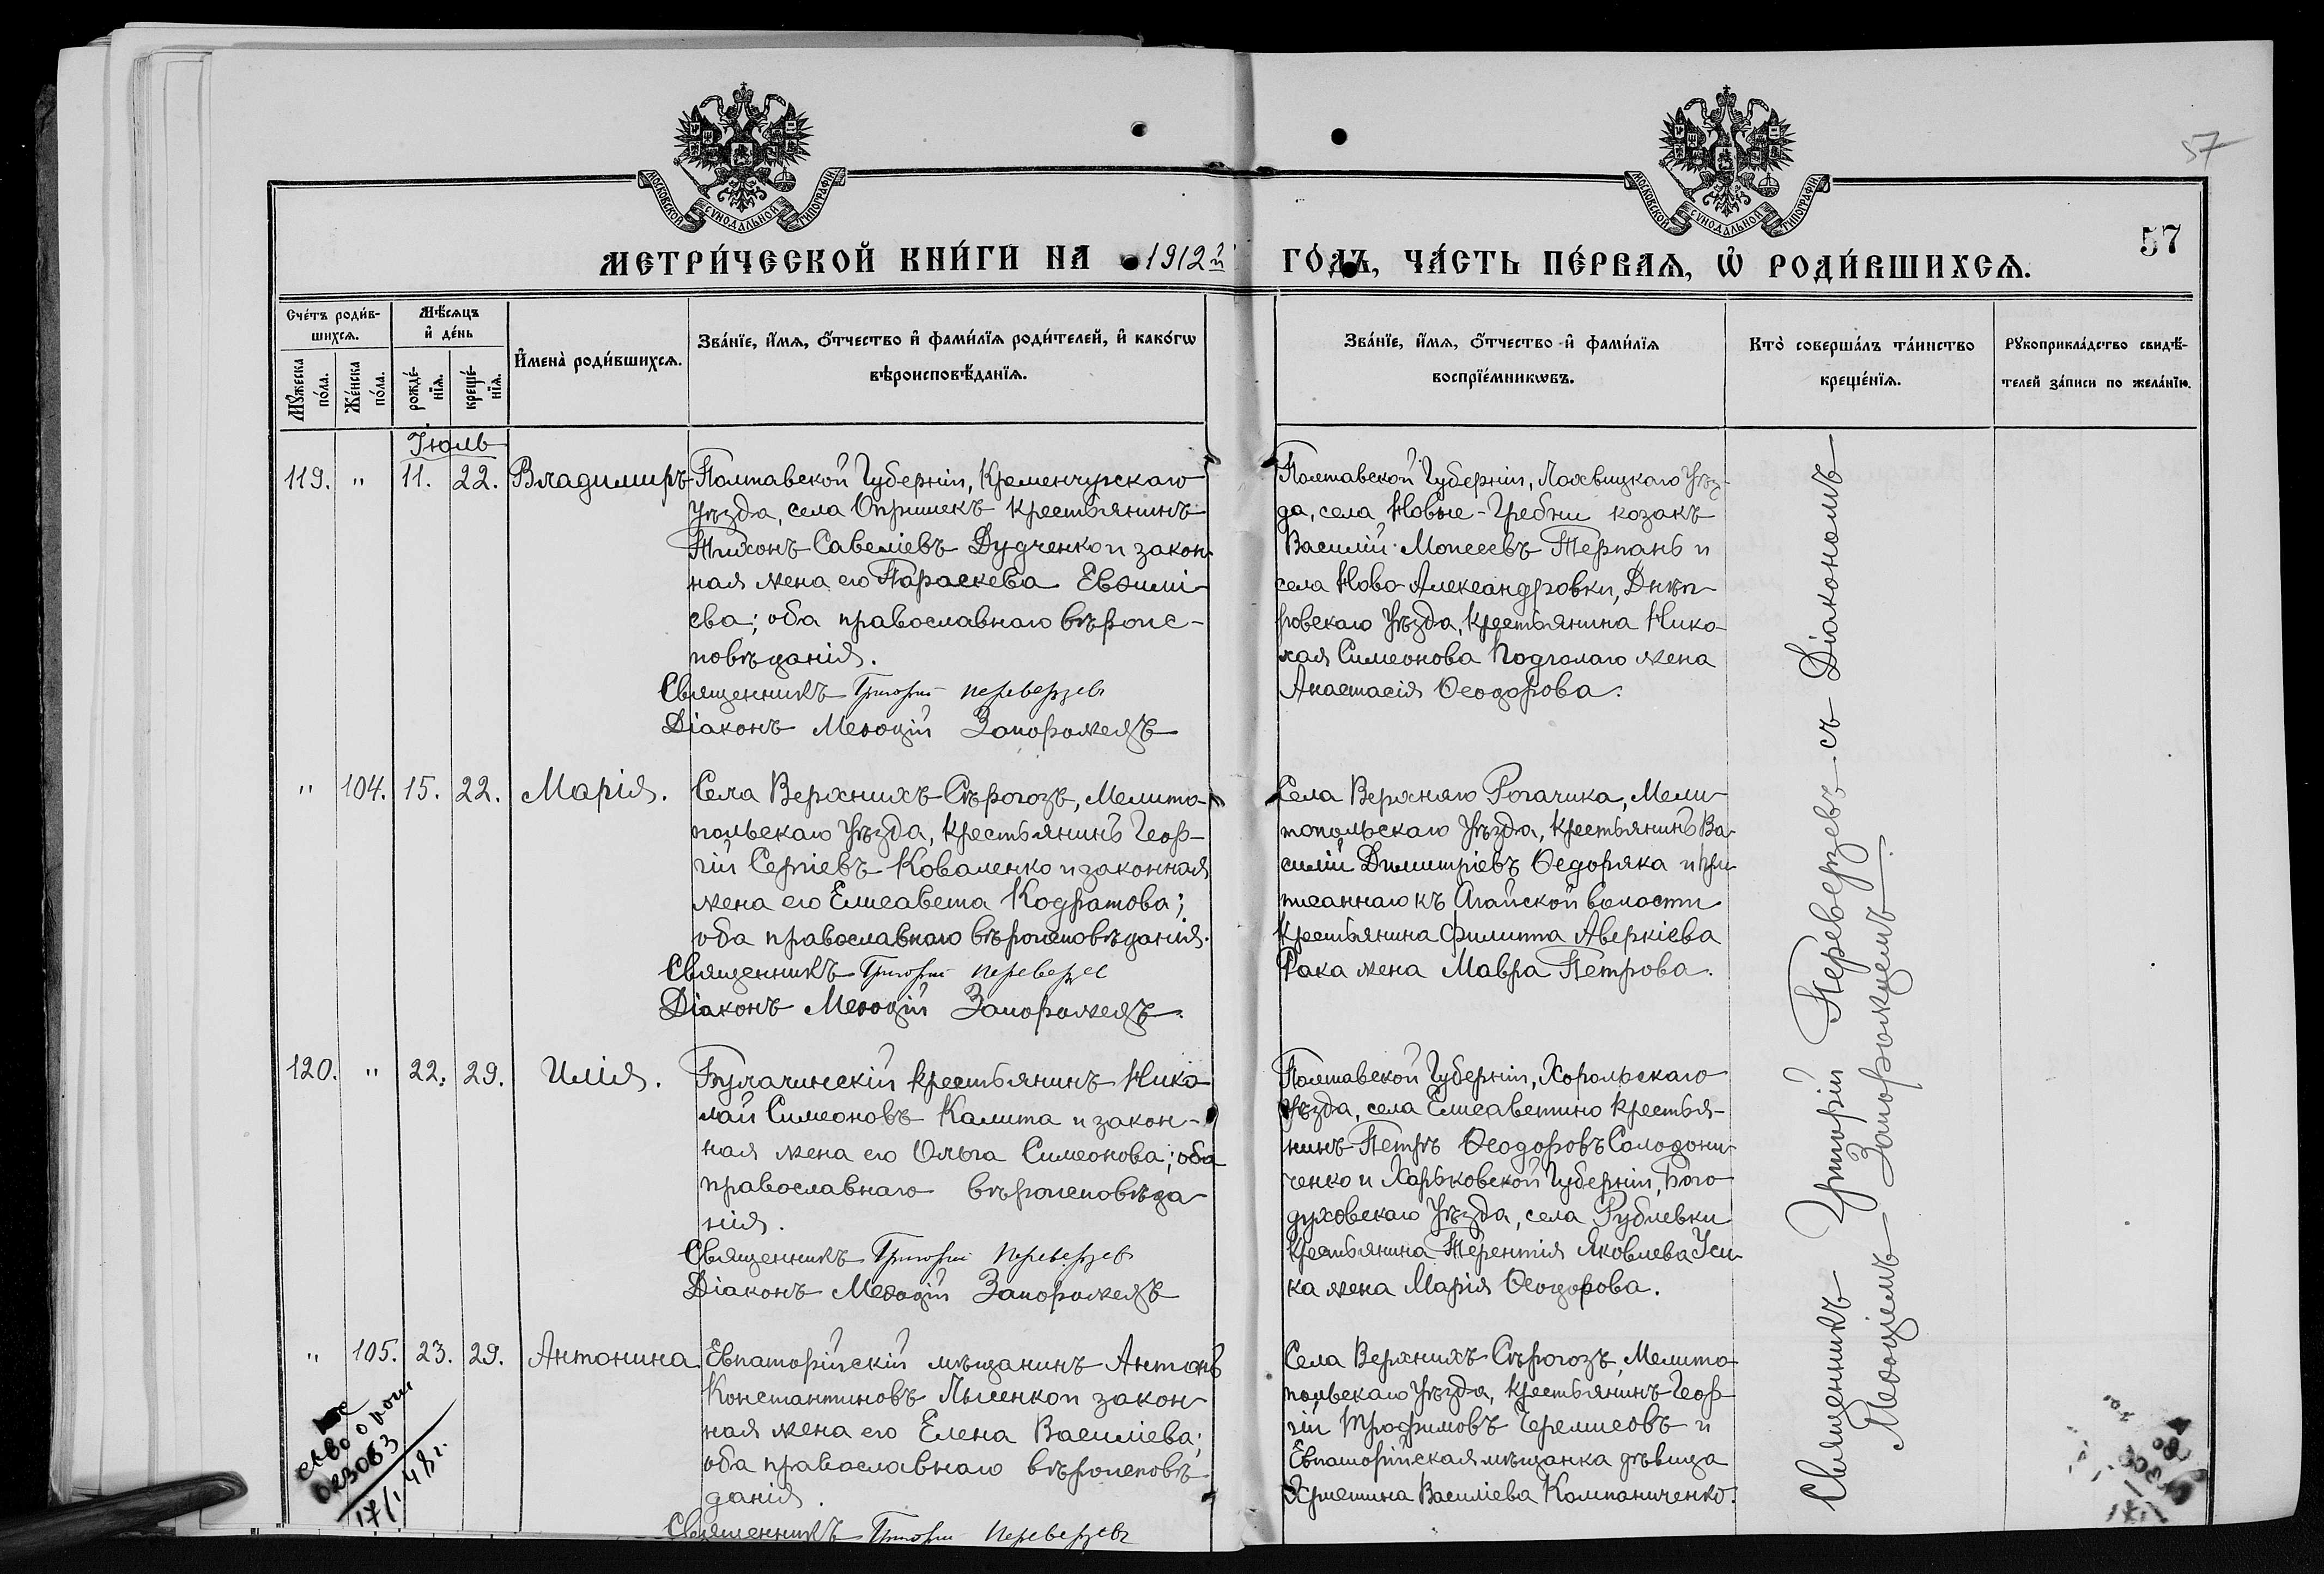 57
МОСКОВСКОЙ СУНОДАЛЬНОЙ ТИПОГРАФІИ
МОСКОВСКОЙ СУНОДАЛЬНОЙ ТИПОГРАФІИ
57
МЕТРИ́ЧЕСКОЙ КНИ́ГИ НА 1912й ГО́ДЪ, ЧА́СТЬ ПЕ́РВАѦ, Ѡ҆ РОДИ́ВШИХСѦ.
Сче́тъ роди́в-
шихсѧ.
Мꙋ́жеска
по́ла.
Же́нска
по́ла.
Мѣ́сѧцъ
и҆ де́нь
рожде́-
нїѧ.
креще́-
нїѧ.
И҆мена̀ роди́вшихсѧ.
Зва́нїе, и҆́мѧ, ѻ҆́тчество и҆ фами́лїѧ роди́телей, и҆ како́гѡ
вѣроисповѣ́данїѧ.
Зва́нїе, и҆́мѧ, ѻ҆́тчество и҆ фами́лїѧ
воспрїе́мникѡвъ.
Кто̀ соверша́лъ та́инство
креще́нїѧ.
Рꙋкоприкла́дство свидѣ́-
телей за́писи по жела́нїю.
Іюль
119. " 11. 22. Владимиръ
Полтавской Губерніи, Кременчугскаго
уѣзда, села Опришекъ крестьянинъ
Тихонъ Савеліевъ Дудченко и закон-
ная жена его Параскева Евѳимі-
ева; оба православнаго вѣроис-
повѣданія.
Священникъ Григорій Переверзевъ
Діаконъ Меѳодій Запорожецъ
Полтавской Губерніи, Лохвицкаго Уѣз-
да, села Новые-Гребни козакъ
Василій Моисеевъ Терпань и
села Ново-Александровки, Днѣп-
ровскаго Уѣзда, крестьянина Нико-
лая Симеонова Подголаго жена
Анастасія Ѳеодорова.
" 104. 15. 22. Марія.
Села Верхнихъ-Сѣрогозъ, Мелито-
польскаго Уѣзда, крестьянинъ Геор-
гій Сергіевъ Коваленко и законная
жена его Елисавета Кодратова;
оба православнаго вѣроисповѣданія.
Священникъ Григорій Переверзев
Діаконъ Меѳодій Запорожецъ
Села Верхняго Рогачика, Мели-
топольскаго Уѣзда, крестьянинъ Ва-
силій Димитріевъ Ѳедоряка и при-
писаннаго къ Агайской волости
крестьянина Филиппа Аверкіева
Рака жена Мавра Петрова.
120. " 22. 29. Илія.
крестьянинъ Нико-
лай Симеоновъ Калита и закон-
ная жена его Ольга Симеонова; оба
православнаго вѣроисповѣда-
нія.
Священникъ Григорій Переверзев
Діаконъ Меѳодій Запорожецъ
Полтавской Губерніи, Хорольскаго
Уѣзда, села Елисаветино крестья-
нинъ Петръ Ѳеодоровъ Солодони-
ченко и Харьковской Губерніи, Бого-
духовскаго Уѣзда, села Рублевки
крестьянина Терентія Яковлева Уси-
ка жена Марія Ѳеодорова.
" 105. 23. 29. Антонина
Евпаторійскій мѣщанинъ Антонъ
Константиновъ Лысенко и закон-
ная жена его Елена Василіева;
оба православнаго вѣроисповѣ-
данія.
Священникъ Григорій Переверзевъ
Села Верхнихъ Сѣрогозъ, Мелито-
польскаго Уѣзда, крестьянинъ Геор-
гій Трофимовъ Черемисовъ и
Евпаторійская мѣщанка дѣвица
Христина Василіева Компаниченко.
Священникъ Григорій Переверзевъ съ Діакономъ
Меѳодіемъ Запорожцемъ.
023063
17/I 48г.